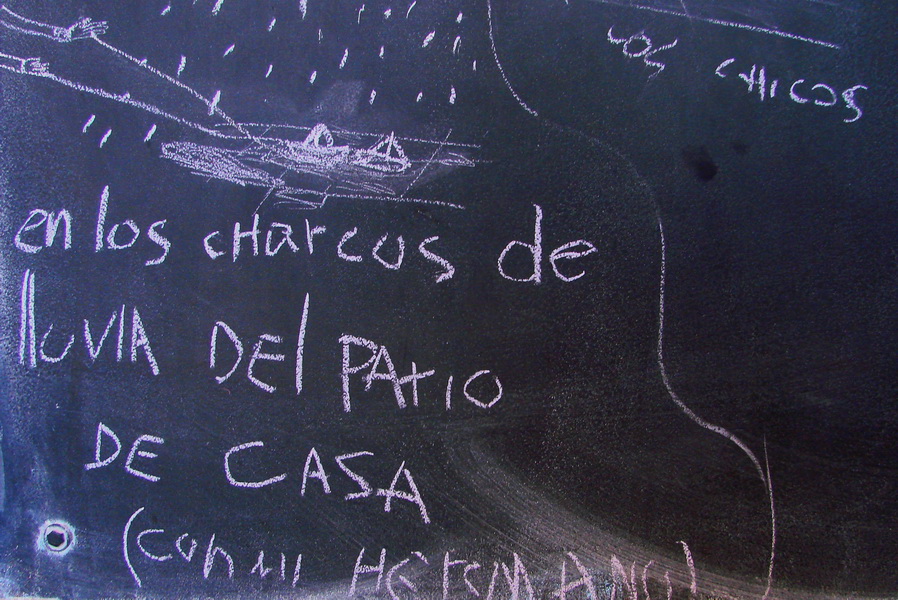 en los cHarcos de
lluVIA DEl PAtIO
DE CASA
(con mi HErMANA)
LOS CHICOS